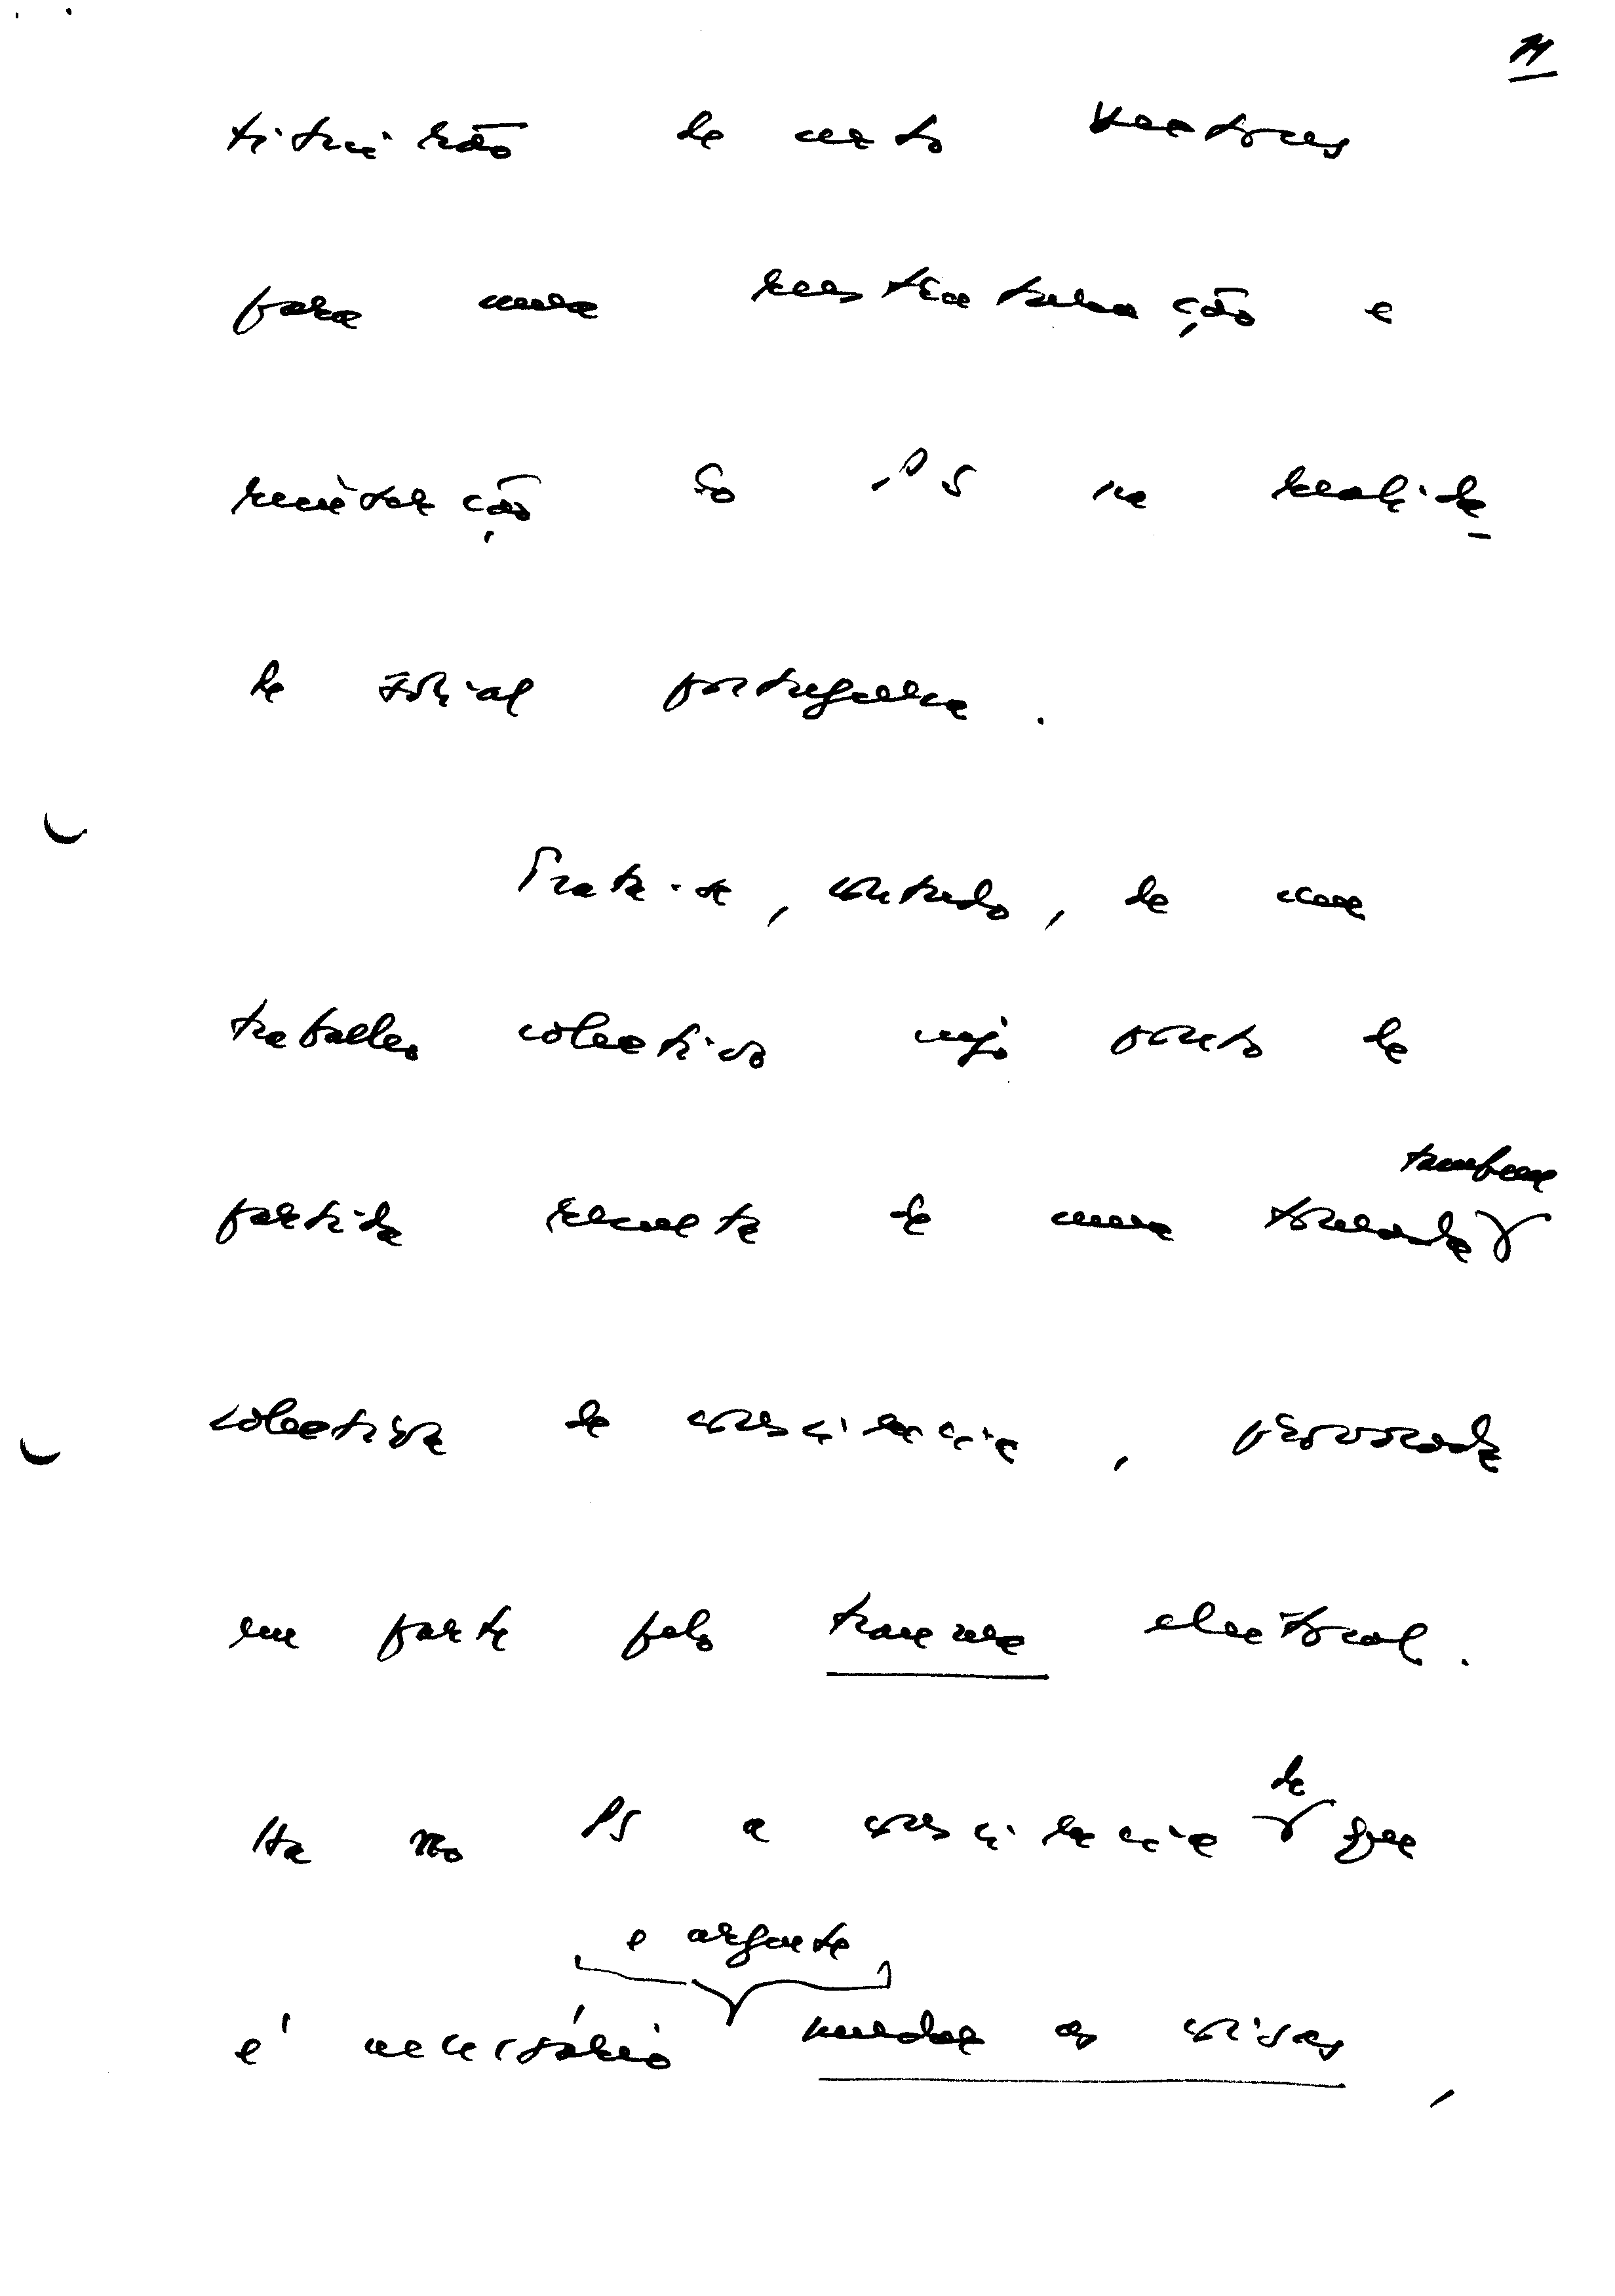 11
tituição de certos vectores
para uma reestruturação e
reinserção do PS na realida
de social portuguesa.
Trata-se, contudo, de um
trabalho colectivo cujo ponto de
partida resulta de uma tomada também
colectiva de consciência, provocada
em parte pelo trauma eleitoral.
Há no PS a consciência de que
e urgente
é necessário mudar as coisas,